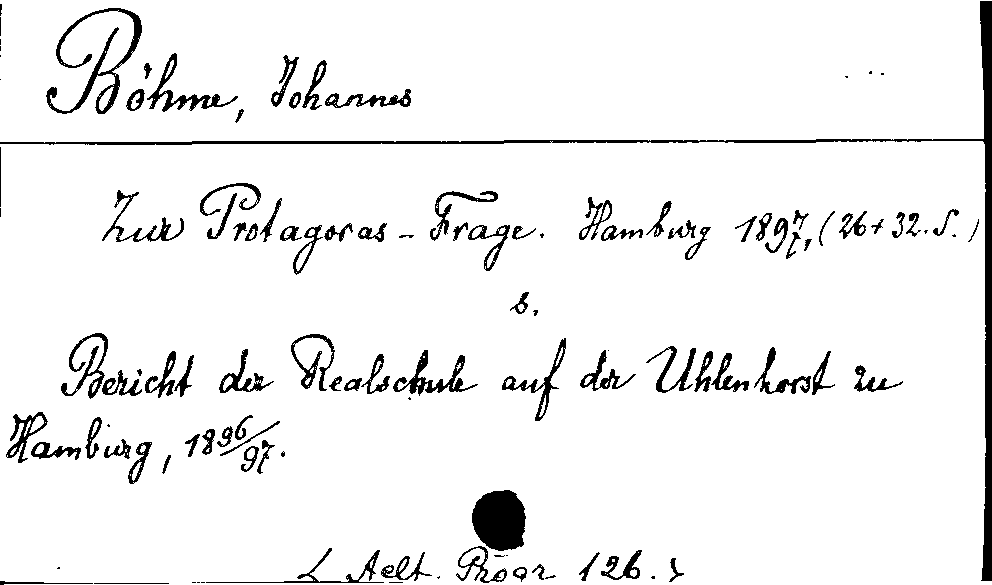 Böhme, Johannes
Zur Protagoras-Frage. Hamburg 1897, (26+32.S.)
s.
Bericht der Realschule auf der Uhlenhorst zu
Hamburg, 1896/97.
< Aelt. Progr 126. >